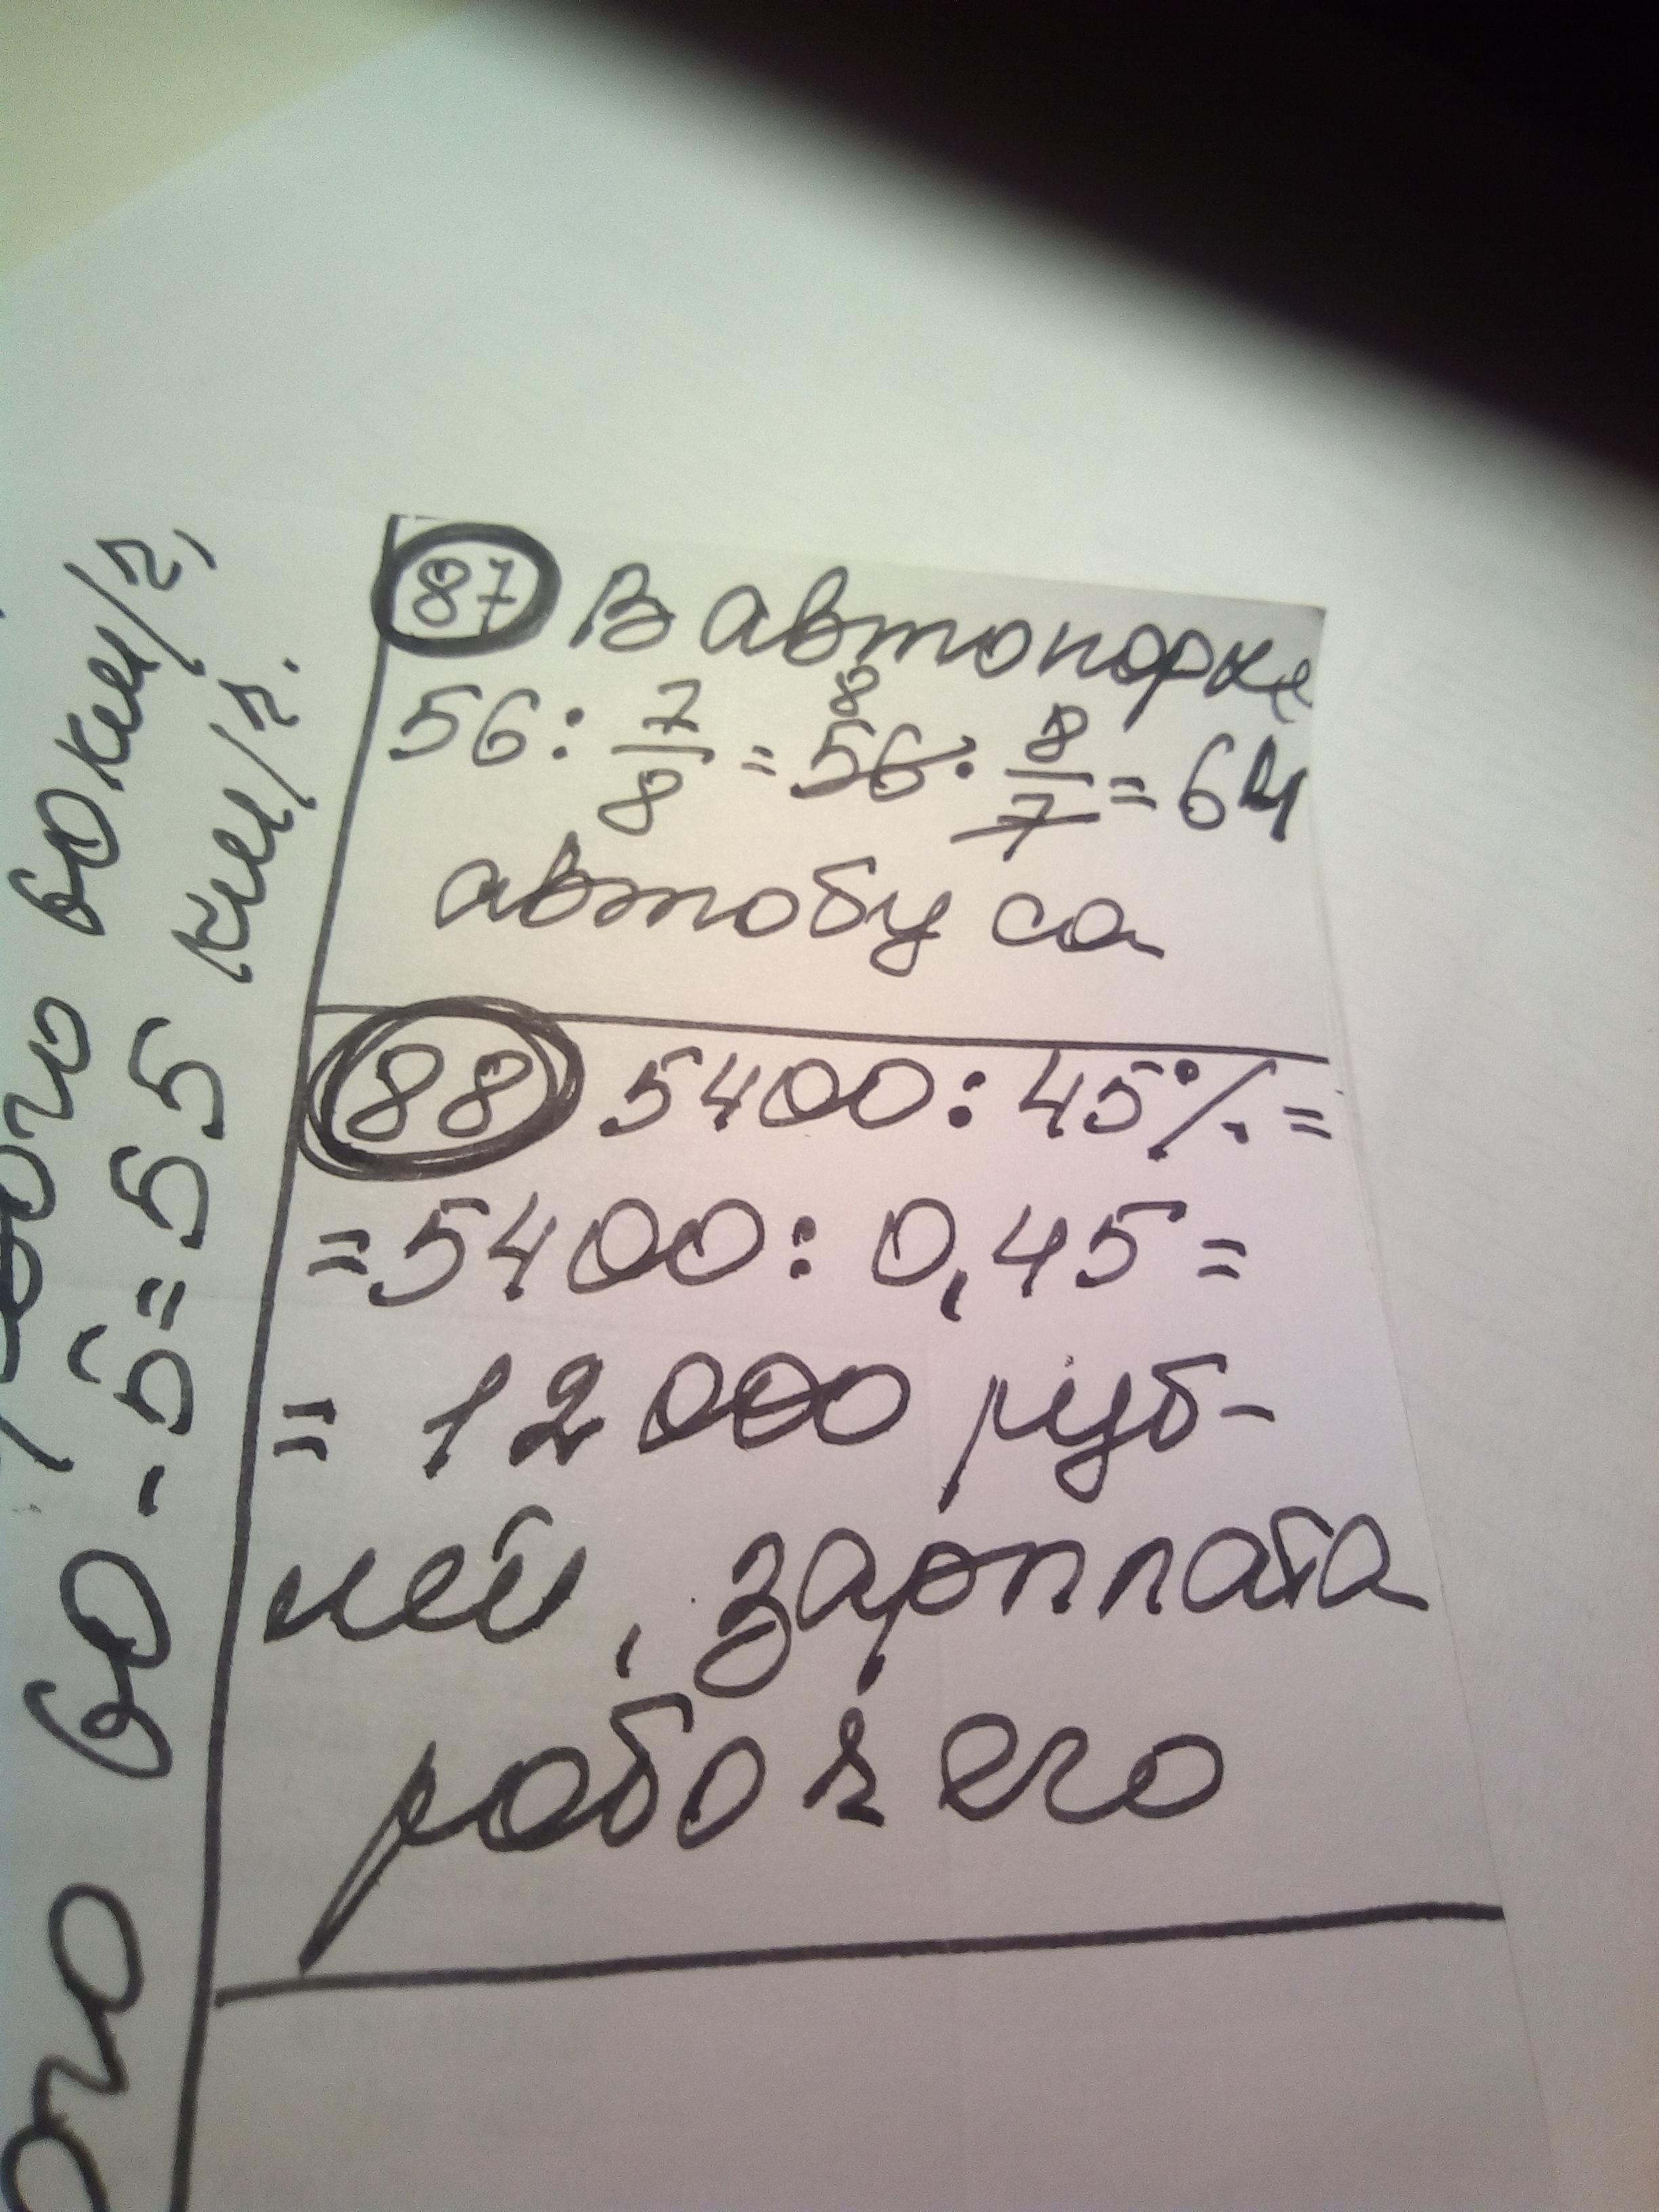 87 В автопарке
56 : 7/8 = 56 · 8/7 = 64
8
автобуса
88 5400 : 45% =
= 5400 : 0,45 =
= 12000 руб-
лей, зарплата
рабочего
60 км/ч,
60 - 5 = 55 км/ч.